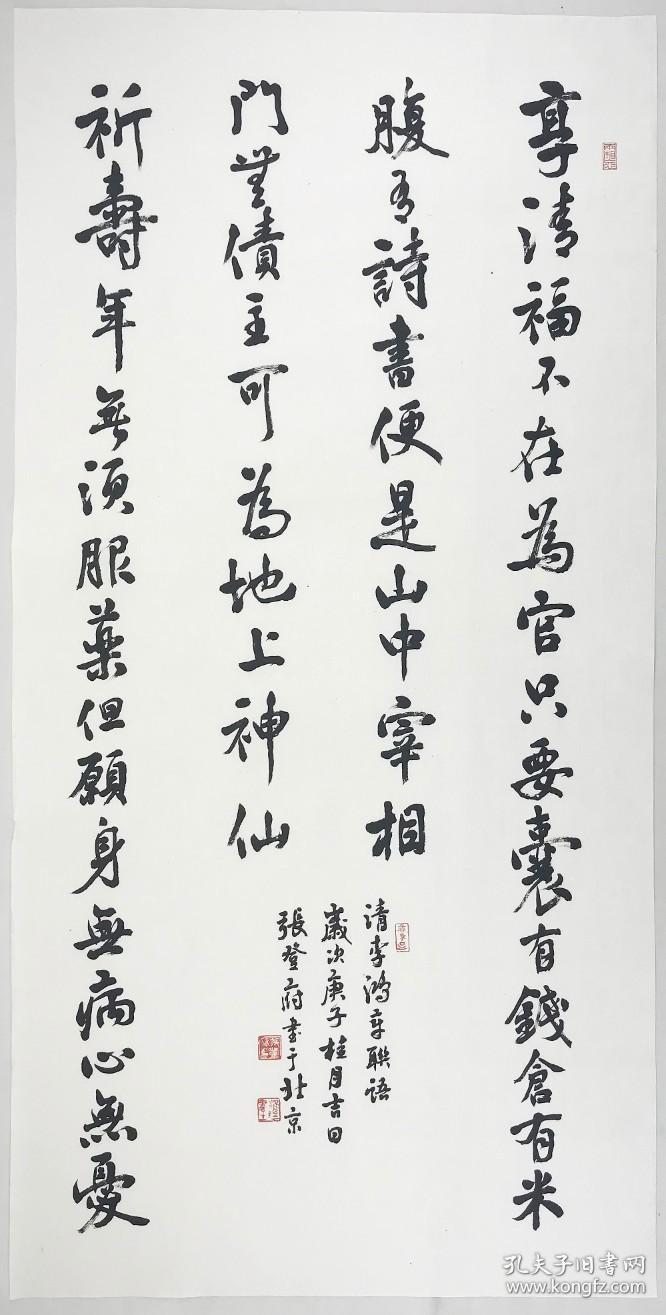 享清福不在為官只要囊有錢倉有米
腹有詩書便是山中宰相
祈壽年無須服藥但願身無病心無憂
門無債主可為地上神仙
清李鴻章聯語
歲次庚子桂月吉日
張登府書于北京
孔夫子旧书网
www.kongfz.com